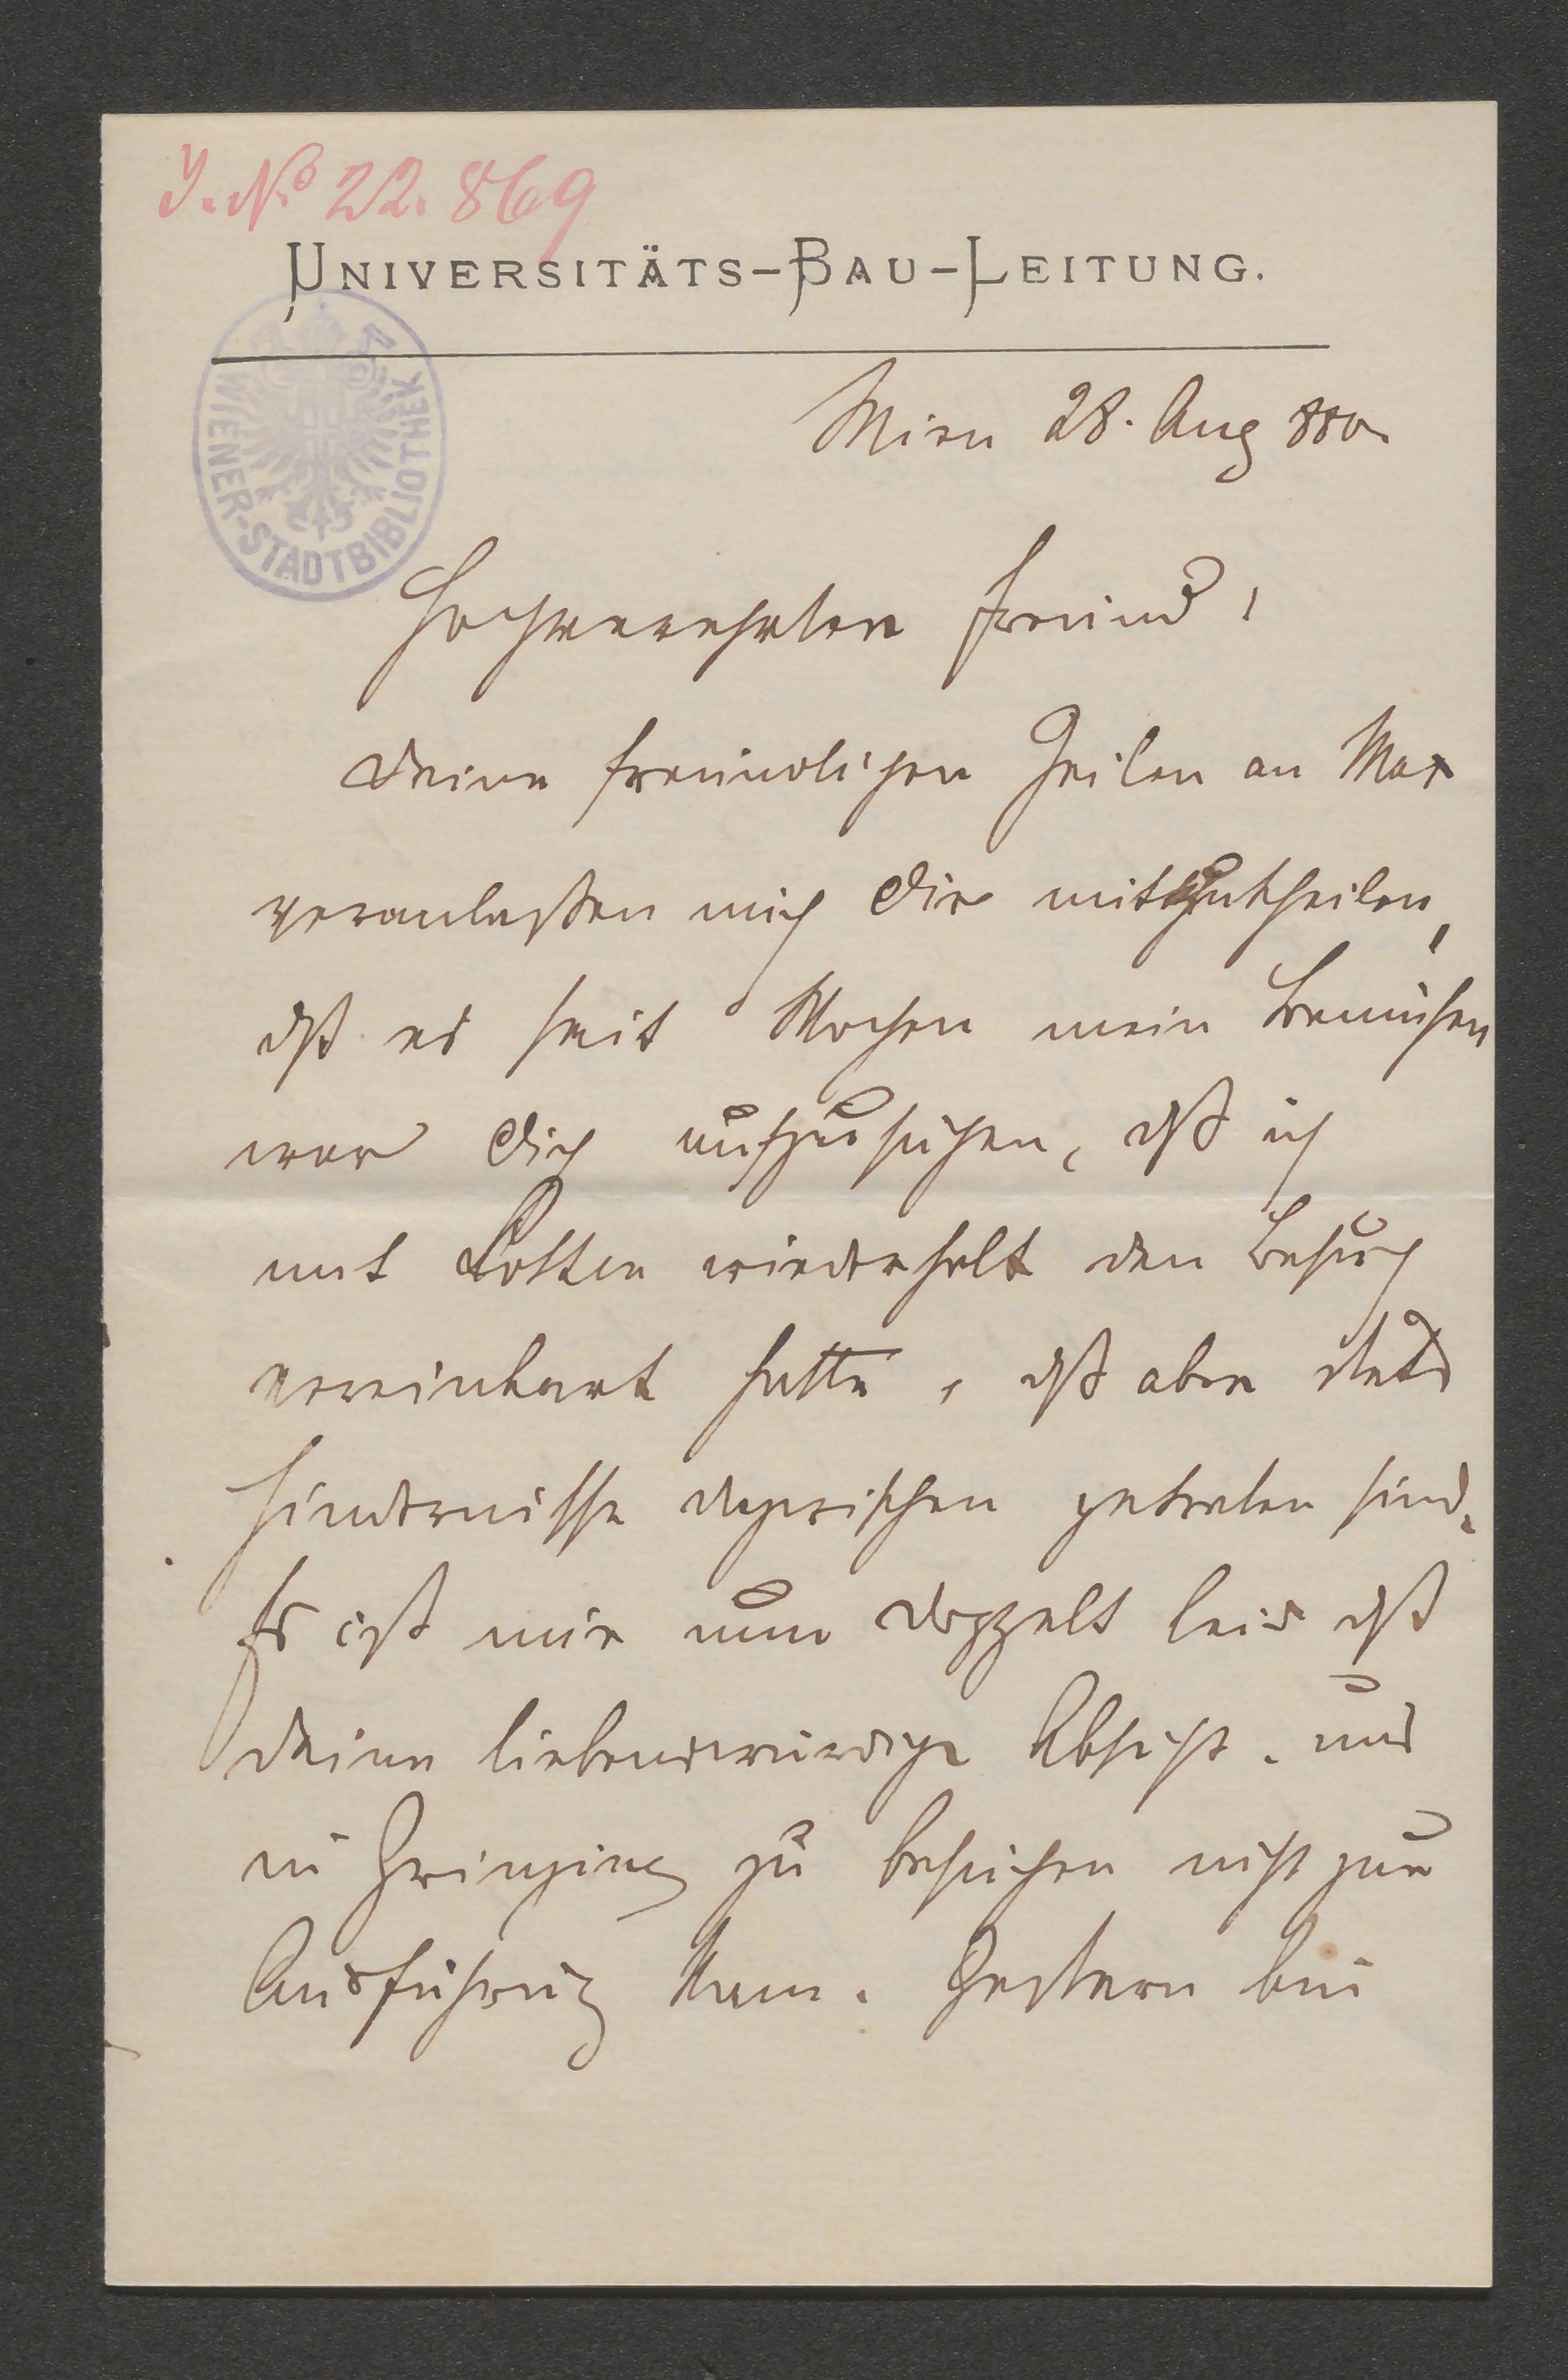 J. No 22.869
UNIVERSITÄTS-BAU-LEITUNG.
WIENER-STADTBIBLIOTHEK
Wien 28. Aug 880.
Hochverehrter Freund,
Deine freundlichen Zeilen an Max
veranlaßen mich Dir mitzutheilen,
dß es seit Wochen mein Bemühen
war Dich aufzusuchen, dß ich
mit wiederholt den Besuch
vereinbart hatte, dß aber stets
Hindernisse dazwischen getreten sind.
Es ist mir nun doppelt leid dß
Deine liebenswürdige Absicht, uns
in Grinzing zu besuchen nicht zur
Ausführung kam. Gestern bin